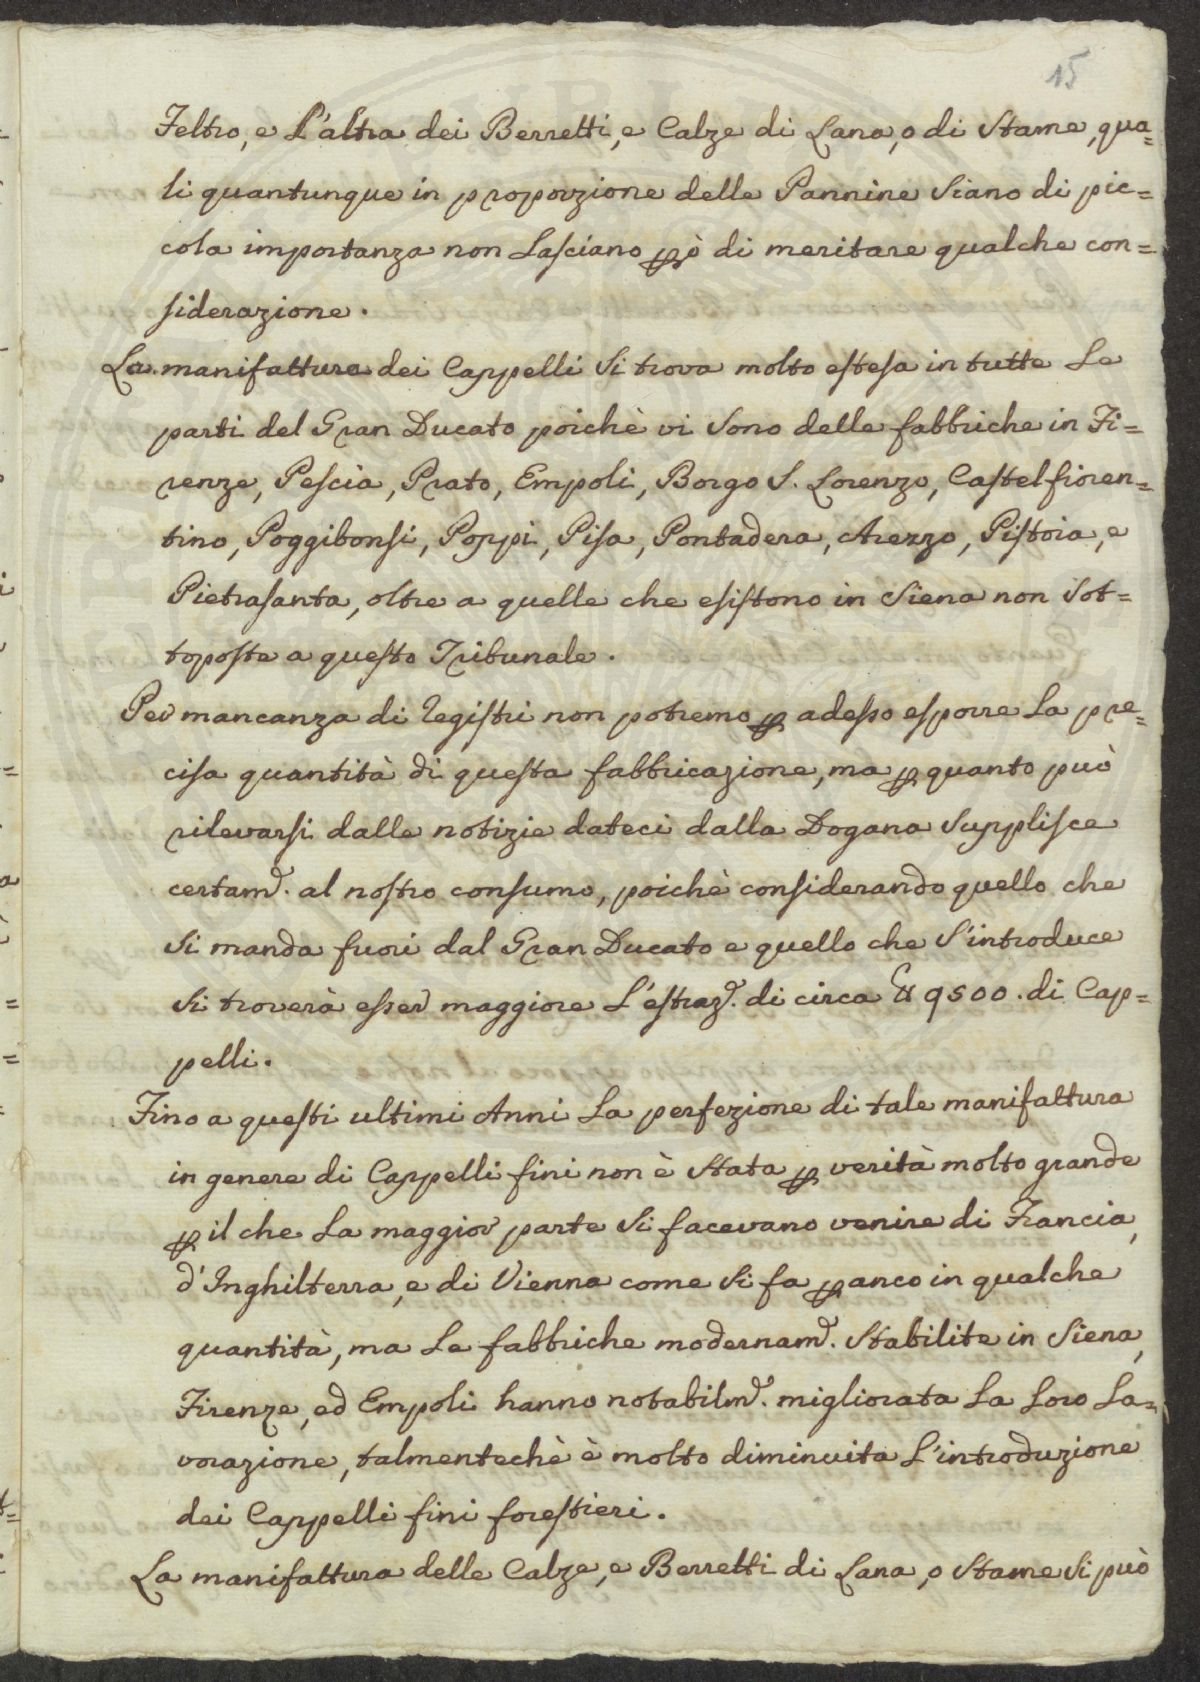 15
Feltro, e L'altra dei Berretti, e Calze di Lana, o di Stame, qua=
li quantunque in proporzione delle Pannine Siano di pic=
cola importanza non Lasciano ꝑò di meritare qualche con=
siderazione.
La manifattura dei Cappelli Si trova molto estesa in tutte Le
parti del Gran Ducato poichè vi Sono delle fabbriche in Fi=
renze, Pescia, Prato, Empoli, Borgo S. Lorenzo, Castelfioren=
tino, Poggibonsi, Poppi, Pisa, Pontadera, Arezzo, Pistoia, e
Pietrasanta, oltre a quelle che esistono in Siena non Sot=
toposte a questo Tribunale.
Per mancanza di Registri non potremo ꝑ adesso esporre La pre=
cisa quantità di questa fabbricazione, ma ꝑ quanto può
rilevarsi dalle notizie dateci dalla Dogana Supplisce
certamᵉ. al nostro consumo, poichè considerando quello che
Si manda fuori dal Gran Ducato e quello che S'introduce
Si troverà esser maggiore L'estrazᵉ. di circa 9500. di Cap=
pelli.
Fino a questi ultimi Anni La perfezione di tale manifattura
in genere di Cappelli fini non è Stata ꝑ verità molto grande
ꝑ il che La maggior parte Si facevano venire di Francia,
d'Inghilterra, e di Vienna come Si fa ꝑ anco in qualche
quantità, ma Le fabbriche modernamᵉ. Stabilite in Siena,
Firenze, ed Empoli hanno notabilmᵉ. migliorata La Loro La=
vorazione, talmentechè è molto diminuita L'introduzione
dei Cappelli fini forestieri.
La manifattura delle Calze, e Berretti di Lana, o Stame Si può